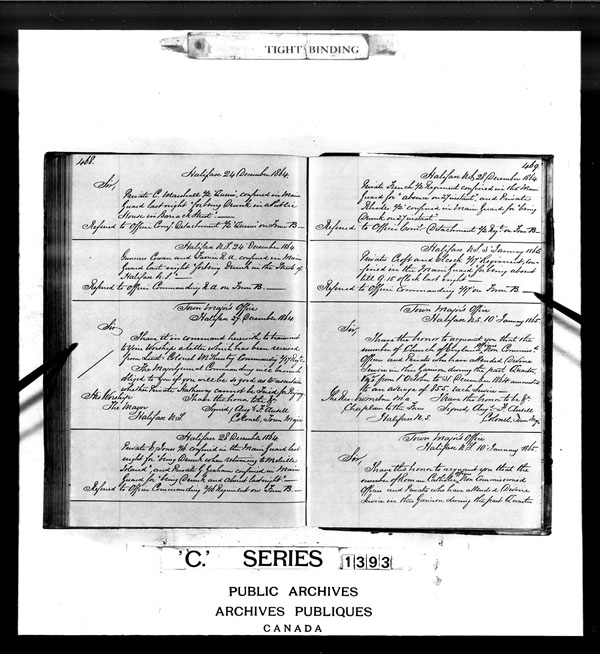 TIGHT BINDING
468.
Halifax 24 December 1864
Sir,
Private C. Marshall "Queen's", confined in Main
Guard last night "for being Drunk in a Public
House in Barrack Street".—
Referred to Officer Comg Detachment "Queen's" on Form B.—
Halifax N.S. 24 December 1864
Gunners Cowan and R.A. confined in Main
Guard last night "for being Drunk on the Streets of
Halifax N.S."—
Referred to Officer Commanding R.A. on Form B.—
Town Major's Office
Halifax 27 December 1864
Sir
I have it in command herewith to transmit
to Your Worship a letter which has been received
from Lieut. Colonel Commanding
The Major General Commanding will be much
obliged to you if you will be so good as to ascertain
whether Private cannot be
His Worship I have the honor to be &c
The Mayor Signed
Halifax N.S. Colonel, Town Major
Halifax 28 December 1864
Private Jones confined in the Main Guard last
night for "being Drunk when returning to Melville
Island", and Private G. Graham confined in Main
Guard for "being Drunk and absent last night".—
Referred to Officer Commanding Regiment on Form B.—
469.
Halifax N.S. 28 December 1864
Private French Regiment confined in the Main
Guard for "absence on 27 instant", and Private
confined in Main Guard for "being
Drunk on 27 instant"
Referred to Officer Detachment on Form B—
Halifax N.S. 5 January 1865
Private Croft and Regiment, con-
fined in the Main Guard "for being absent
till 9.15 o'clock last night"—
Referred to Officer Commanding on Form B.—
Town Major's Office
Halifax N.S. 10 January 1865.
Sir,
I have the honor to acquaint you that the
number of Church of England Non Commissd
Officers and Privates who have attended Divine
Service in this Garrison during the past Quarter
from 1 October to 31 December 1864 amounted
to an average of 855 each Service—
The Rev I have the honor to be &c.
Chaplain to the Forces Signed
Halifax N.S. Colonel, Town Major
Town Major's Office
Halifax N.S. 10 January 1865.
Sir,
I have the honor to acquaint you that the
number of Roman Catholic Non Commissioned
Officers and Privates who have attended Divine
Service in this Garrison during the past Quarter
'C.' SERIES 1393
PUBLIC ARCHIVES
ARCHIVES PUBLIQUES
CANADA